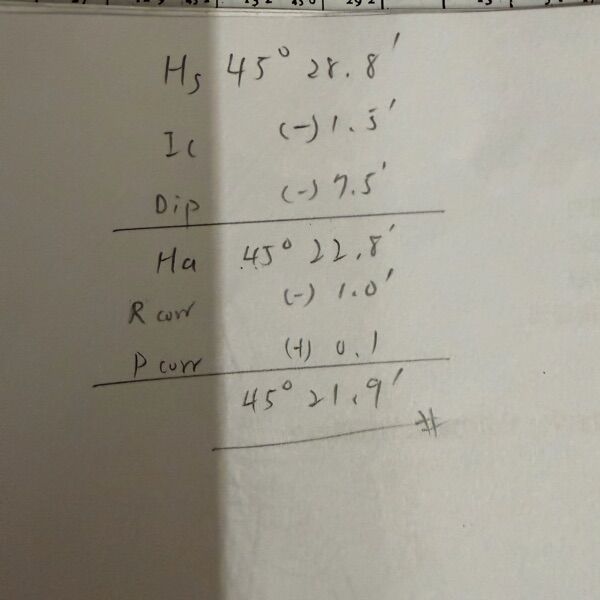 Hs 45° 28.8'
Ic (-) 1.5'
Dip (-) 7.5'
Ha 45° 22.8'
R corr (-) 1.0'
P corr (+) 0.1
45° 21.9'
#